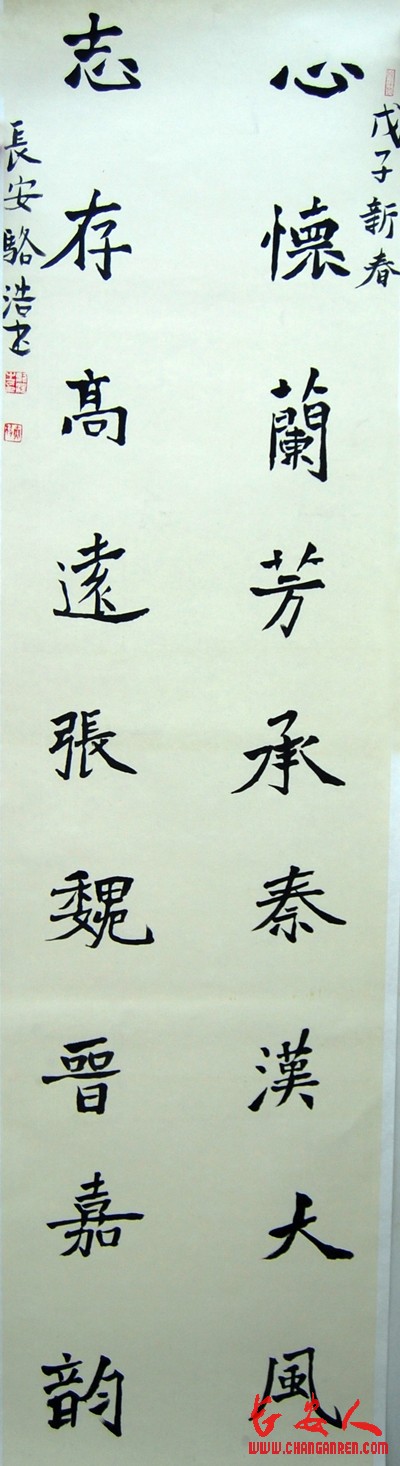 戊子新春
心懷蘭芳承秦漢大風
志存高遠張魏晉嘉韵
長安駱浩书
长安人
WWW.CHANGANREN.COM